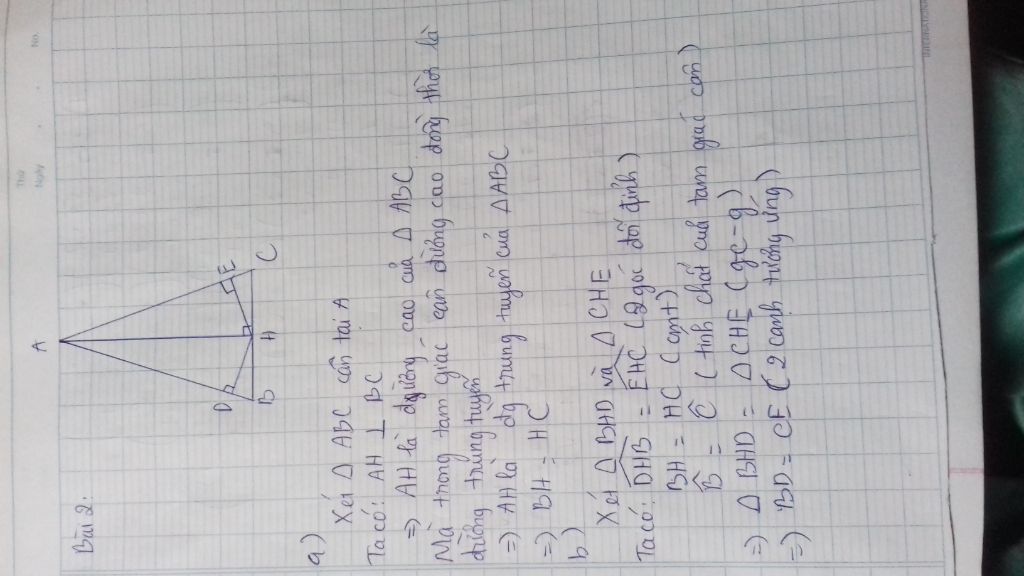 No.
Thứ
Ngày
INTERNATIONAL
Bài 2:
A
D
E
B
H
C
a)
Xét Δ ABC cân tại A
Ta có: AH ⊥ BC
=> AH là đường cao của Δ ABC
Mà trong tam giác cân đường cao đồng thời là
đường trung tuyến
=> AH là đg trung tuyến của ΔABC
=> BH = HC
b)
Xét Δ BHD và Δ CHE
Ta có: DHB = EHC (2 góc đối đỉnh)
BH = HC (cmt)
B̂ = Ĉ (tính chất của tam giác cân)
=> Δ BHD = Δ CHE (gc-g)
=) BD = CE (2 cạnh tương ứng)